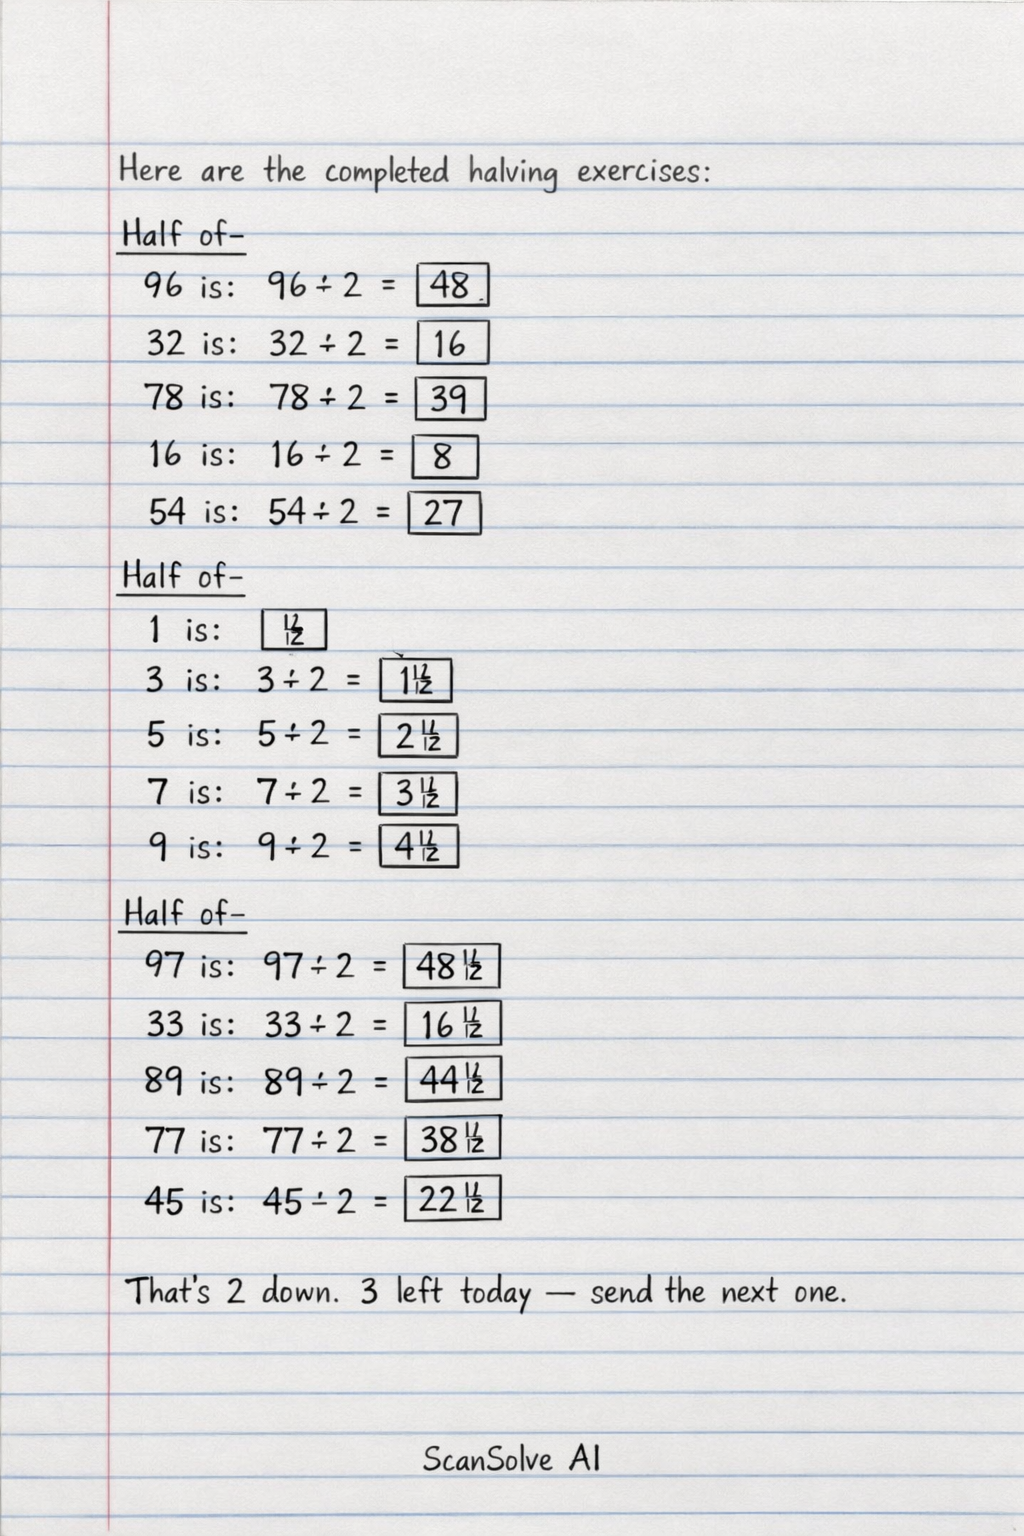 Here are the completed halving exercises:
Half of-
96 is: 96 ÷ 2 = 48
32 is: 32 ÷ 2 = 16
78 is: 78 ÷ 2 = 39
16 is: 16 ÷ 2 = 8
54 is: 54 ÷ 2 = 27
Half of-
1 is: ½
3 is: 3 ÷ 2 = 1½
5 is: 5 ÷ 2 = 2½
7 is: 7 ÷ 2 = 3½
9 is: 9 ÷ 2 = 4½
Half of-
97 is: 97 ÷ 2 = 48½
33 is: 33 ÷ 2 = 16½
89 is: 89 ÷ 2 = 44½
77 is: 77 ÷ 2 = 38½
45 is: 45 ÷ 2 = 22½
That's 2 down. 3 left today — send the next one.
ScanSolve AI